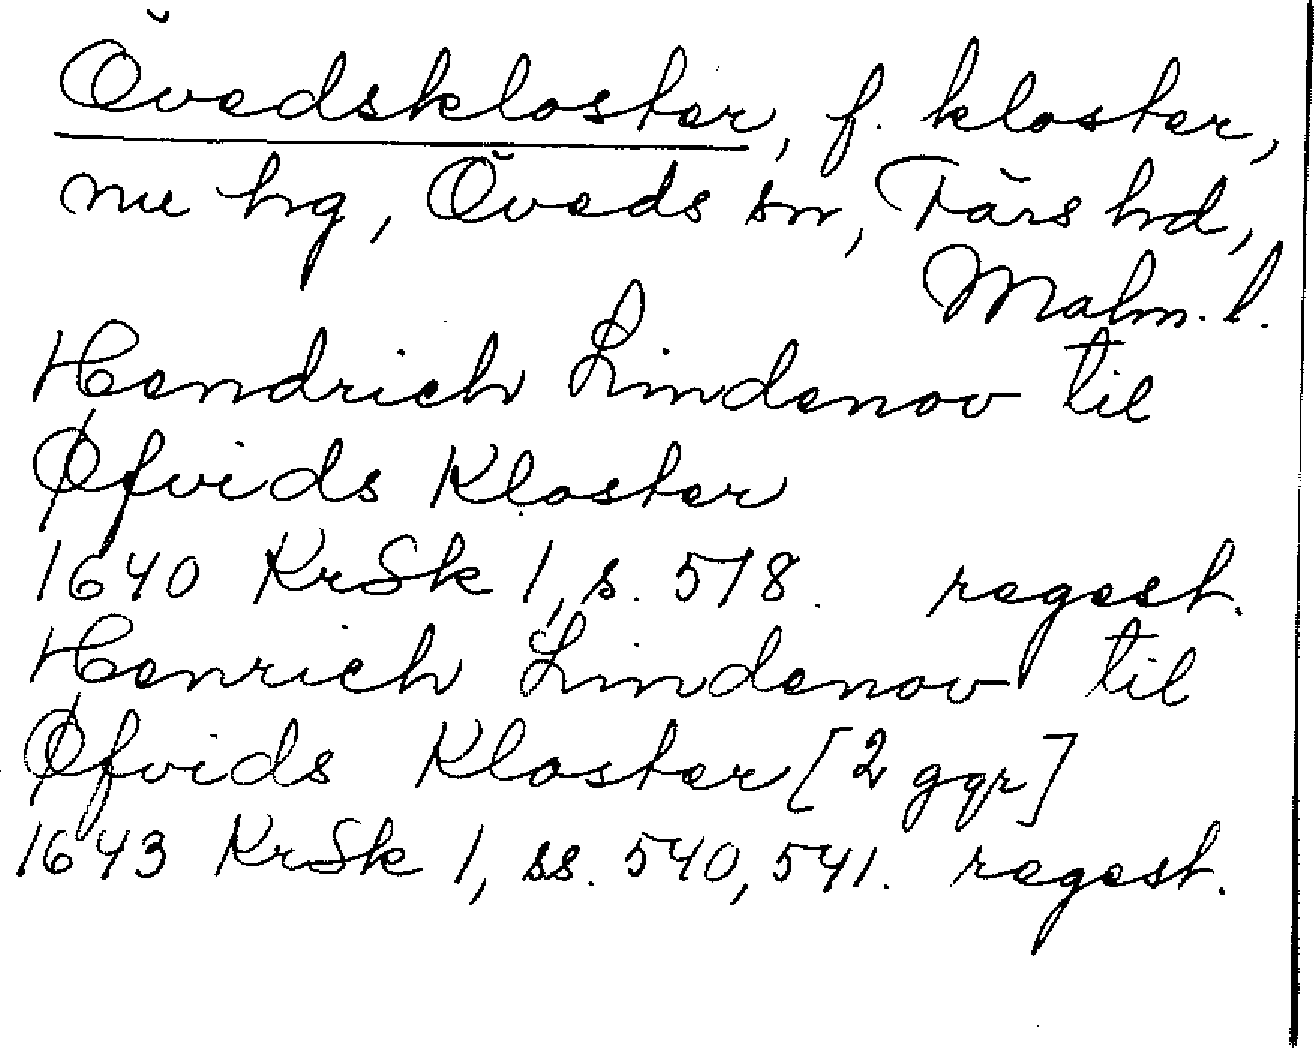 Övedskloster, f. kloster,
nu hg, Öveds sn, Färs hd,
Malm. l.
Hendrich Lindenov til
Øfvids Kloster
1640 KrSk 1, s. 518. regest.
Henrich Lindenov til
Øfvids Kloster [2 ggr]
1643 KrSk 1, ss. 540, 541. regest.